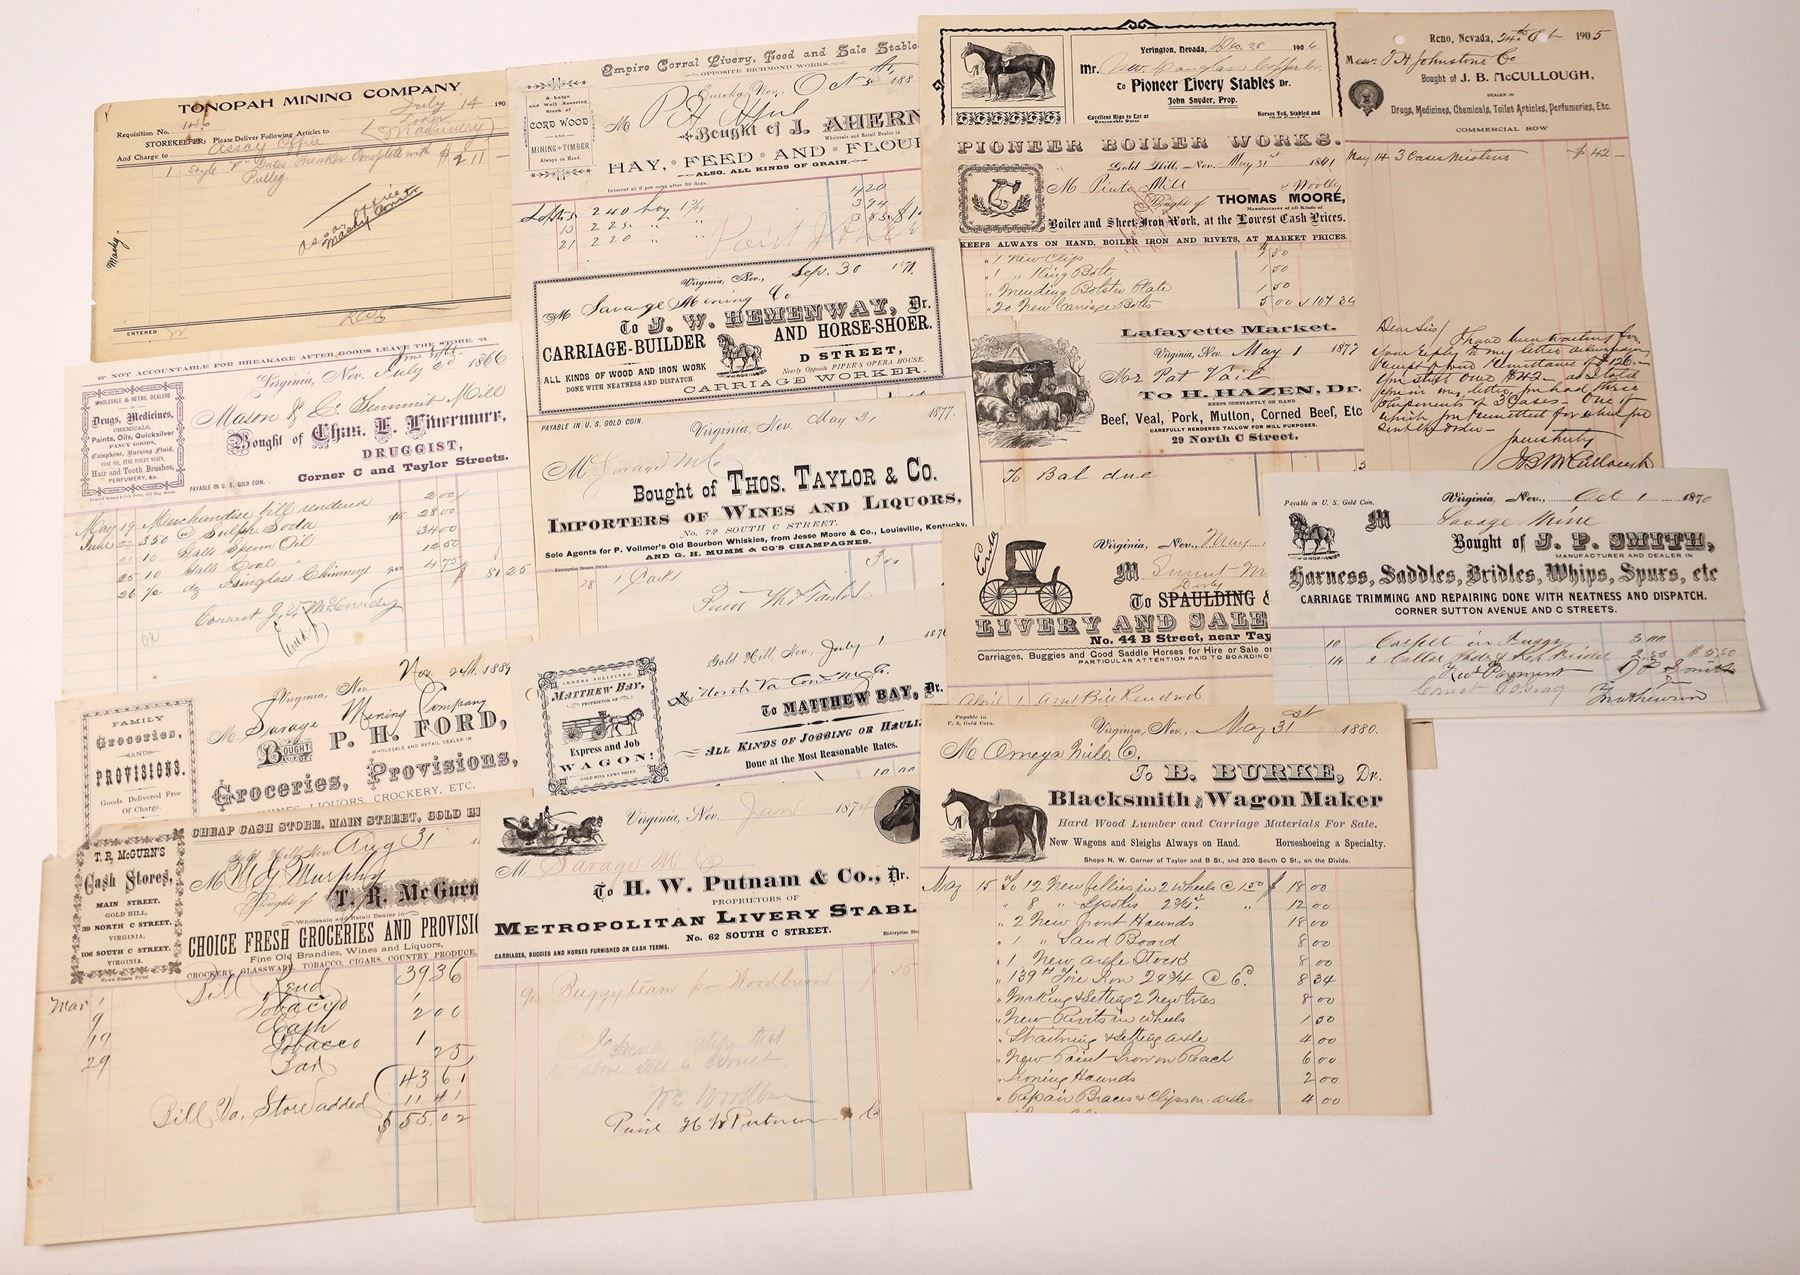 TONOPAH MINING COMPANY
July 14 190
Requisition No. 146
STOREKEEPER: Please Deliver Following Articles to
And Charge to Assay Office
1 Style "F" Sample Complete with $211
Pulley
ENTERED
Empire Corral Livery, Feed and Sale Stable
OPPOSITE RICHMOND WORKS.
A Large
and Well Assorted
Stock of
CORD WOOD
—AND—
MINING TIMBER
Always on Hand.
Eureka, Nev., Oct 5th, 188
M
Bought of J. AHERN
Wholesale and Retail Dealer in
HAY, FEED AND FLOUR
ALSO, ALL KINDS OF GRAIN.
Interest at 2 per cent after 30 days.
Sept 5 240 hay 1 3/4 4 20
13 225 " " 3 94
21 220 " " 3 85
Yerington, Nevada, Dec. 28 1906
Mr.
To Pioneer Livery Stables Dr.
John Snyder, Prop.
Excellent Rigs to Let at
Horses Fed, Stabled and
Reno, Nevada, 24th 1905
Messr T. H. Johnstone Co
Bought of J. B. McCULLOUGH,
DEALER IN
Drugs, Medicines, Chemicals, Toilet Articles, Perfumeries, Etc.
COMMERCIAL ROW
May 14 3 Cases $42 —
Dear Sirs/ I have been waiting for
your reply to my letter
J B McCullough
PIONEER BOILER WORKS.
Gold Hill, Nev. May 31st
M
Bought of THOMAS MOORE,
Manufacturer of all Kinds of
Boiler and Sheet-Iron Work, at the Lowest Cash Prices.
KEEPS ALWAYS ON HAND, BOILER IRON AND RIVETS, AT MARKET PRICES.
1 New Clip
1 " King Bolt 1 50
Mending Bolster Plate 1 50
20 New Carriage Bolts 5 00
Virginia, Nev., Sep. 30 187
M Savage Mining Co
To J. W. HEMENWAY, Dr.
CARRIAGE-BUILDER AND HORSE-SHOER.
ALL KINDS OF WOOD AND IRON WORK
DONE WITH NEATNESS AND DISPATCH.
D STREET,
Nearly Opposite PIPER'S OPERA HOUSE.
CARRIAGE WORKER.
NOT ACCOUNTABLE FOR BREAKAGE AFTER GOODS LEAVE THE STORE.
WHOLESALE & RETAIL DEALERS
IN
Drugs, Medicines,
CHEMICALS,
Paints, Oils, Quicksilver
FANCY GOODS,
Camphene, Burning Fluid,
COAL OIL, PINE TOILET SOAPS,
Hair and Tooth Brushes,
PERFUMERY, &c.
Virginia, Nev. July 2d 1866
Mason & Co Summit Mill
Bought of Chas. E.
DRUGGIST,
PAYABLE IN U. S. GOLD COIN.
Corner C and Taylor Streets.
May 19 Merchandise bill rendered 2 00
June 22 350 @ Sulph Soda 28 00
23 10 Galls Sperm Oil 34 00
25 10 Galls Coal " 12 50
26 1/2 dz Simglass Chimneys 4 75 $81 25
Correct
Lafayette Market.
Virginia, Nev. May 1 1877
Mr Pat Vail
To H. HAZEN, Dr.
KEEPS CONSTANTLY ON HAND
Beef, Veal, Pork, Mutton, Corned Beef, Etc
CAREFULLY RENDERED TALLOW FOR MILL PURPOSES.
29 North C Street.
To Bal due
PAYABLE IN U. S. GOLD COIN.
Virginia, Nev. May 31 1877.
M Savage M Co
Bought of THOS. TAYLOR & Co.
IMPORTERS OF WINES AND LIQUORS,
No. 72 SOUTH C STREET.
Sole Agents for P. Vollmer's Old Bourbon Whiskies, from Jesse Moore & Co., Louisville, Kentucky,
AND G. H. MUMM & CO'S CHAMPAGNES.
Enterprise Steam Print.
28 1
Thos Taylor
Payable in U. S. Gold Coin.
Virginia, Nev., Oct 1 1870
M Savage Mine
Bought of J. P. SMITH,
MANUFACTURER AND DEALER IN
Harness, Saddles, Bridles, Whips, Spurs, etc
CARRIAGE TRIMMING AND REPAIRING DONE WITH NEATNESS AND DISPATCH.
CORNER SUTTON AVENUE AND C STREETS.
10 3 00
14 2 Collar Pads 2.50 $5.50
Rec'd Payment J P Smith
Virginia, Nev., May
M
To SPAULDING &
LIVERY AND SALE
No. 44 B Street, near Tay
Carriages, Buggies and Good Saddle Horses for Hire or Sale o
PARTICULAR ATTENTION PAID TO BOARDING
April 1 Amt Bill Rendered
FAMILY
Groceries,
—AND—
PROVISIONS.
Goods Delivered Free
of Charge.
Virginia, Nev. Nov. 24th 1889
M Savage Mining Company
BOUGHT OF P. H. FORD,
WHOLESALE AND RETAIL DEALER IN
Groceries, Provisions,
LIQUORS, CROCKERY, ETC.
ORDERS SOLICITED.
MATTHEW BAY,
PROPRIETOR OF
Express and Job
WAGON!
GOLD HILL NEWS PRINT.
Gold Hill, Nev., July 1 187
To MATTHEW BAY, Dr.
ALL KINDS OF JOBBING OR HAULI
Done at the Most Reasonable Rates.
Payable in
U. S. Gold Coin.
Virginia, Nev., May 31st 1880.
M Omega Mill Co.
To B. BURKE, Dr.
Blacksmith and Wagon Maker
Hard Wood Lumber and Carriage Materials For Sale.
New Wagons and Sleighs Always on Hand. Horseshoeing a Specialty.
Shops N. W. Corner of Taylor and B St., and 320 South C St., on the Divide.
May 15 To 12 New fellies in 2 Wheels @ 1.50 $ 18 00
" 8 " Spokes 2 3/4 " 12 00
" 2 New front Haunds 18 00
" 1 " Sand Board 8 00
" 1 New axle Stock 8 00
" 139 lb Tire Iron 2 x 3/4 @ 6c. 8 34
" Working & Setting 2 New tires 8 00
" New Rivits in Wheels 1 50
" Straitning & Setting axle 4 00
" New Paint Iron on Reach 6 00
" Ironing Haunds 2 00
" Repair Braces & Clips on axles 4 00
T. R. McGURN'S
Cash Stores,
MAIN STREET,
GOLD HILL,
39 NORTH C STREET,
VIRGINIA.
106 SOUTH C STREET,
VIRGINIA.
News Steam Print
CHEAP CASH STORE, MAIN STREET, GOLD HI
Gold Hill, Nev. Aug 31
M Murphy
Bought of T. R. McGurn
Wholesale and Retail Dealer in
CHOICE FRESH GROCERIES AND PROVISIO
Fine Old Brandies, Wines and Liquors,
CROCKERY, GLASSWARE, TOBACCO, CIGARS, COUNTRY PRODUCE,
Bill Rend 39 36
Mar 1 Tobacco 1
9 Cash 2 00
19 Tobacco 1
29 25
43 61
Bill Va. Store added 11 41
$55.02
Virginia, Nev. Jan 187
M Savage M Co
To H. W. Putnam & Co., Dr.
PROPRIETORS OF
METROPOLITAN LIVERY STABL
No. 62 SOUTH C STREET.
CARRIAGES, BUGGIES AND HORSES FURNISHED ON CASH TERMS.
Buggy team for Woodburn
I hereby certify that
the above bill is correct
Paid H W Putnam & Co